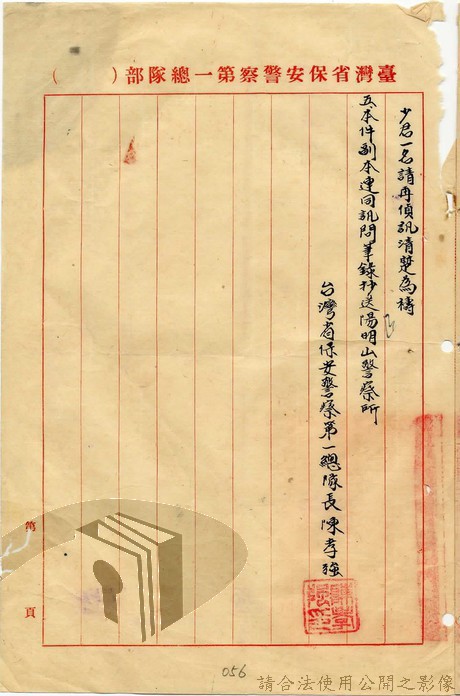 臺灣省保安警察第一總隊部（　　）
少君一名請再偵訊清楚為禱
五、本件副本連同訊問筆錄抄送陽明山警察所
台灣省保安警察第一總隊長陳孝強
第　頁
056
請合法使用公開之影像